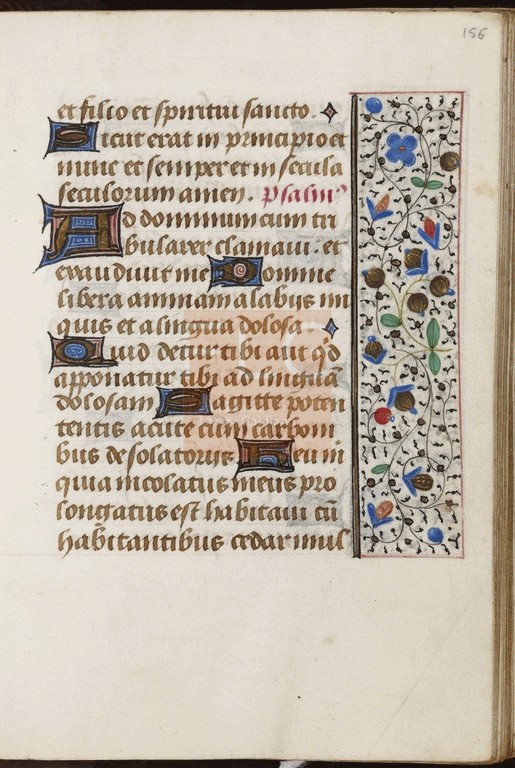 156
et filio et spiritui sancto.
Sicut erat in principio et
nunc et semper et in secula
seculorum amen. psalm⁹
Ad dominum cum tri
bularer clamaui. et
exaudiuit me Domine
libera animam a labijs ini
quis et a lingua dolosa.
Quid detur tibi aut q̄d
apponatur tibi ad linguā
dolosam Sagitte poten
tentis acute cum carboni
bus desolatorijs Heu m
quia incolatus meus pro
longatus est habitaui cū
habitantibus cedar mul